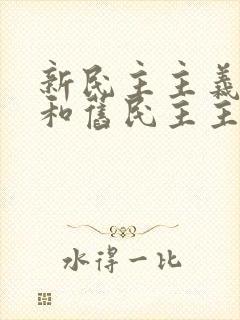 新民主主義
和舊民主主
水得一比